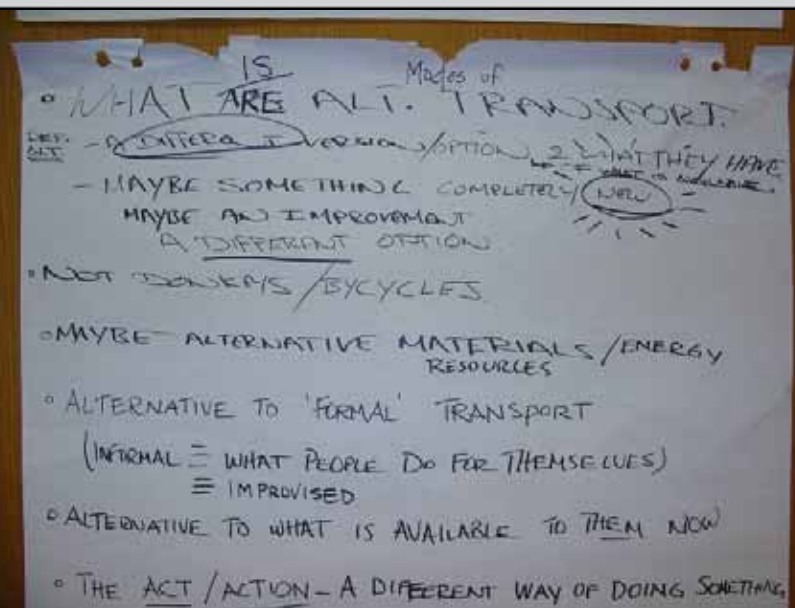 IS Modes of
• WHAT ARE ALT. TRANSPORT.
DEF. ALT - A DIFFERENT VERSION/OPTION 2 WHAT THEY HAVE
- MAYBE SOMETHING COMPLETELY NEW
MAYBE AN IMPROVEMENT
A DIFFERENT OPTION
• NOT DONKEYS/BYCYCLES
• MAYBE ALTERNATIVE MATERIALS/ENERGY
RESOURCES
• ALTERNATIVE TO 'FORMAL' TRANSPORT
(INFORMAL ≡ WHAT PEOPLE DO FOR THEMSELVES)
≡ IMPROVISED
• ALTERNATIVE TO WHAT IS AVAILABLE TO THEM NOW
• THE ACT/ACTION - A DIFFERENT WAY OF DOING SOMETHING